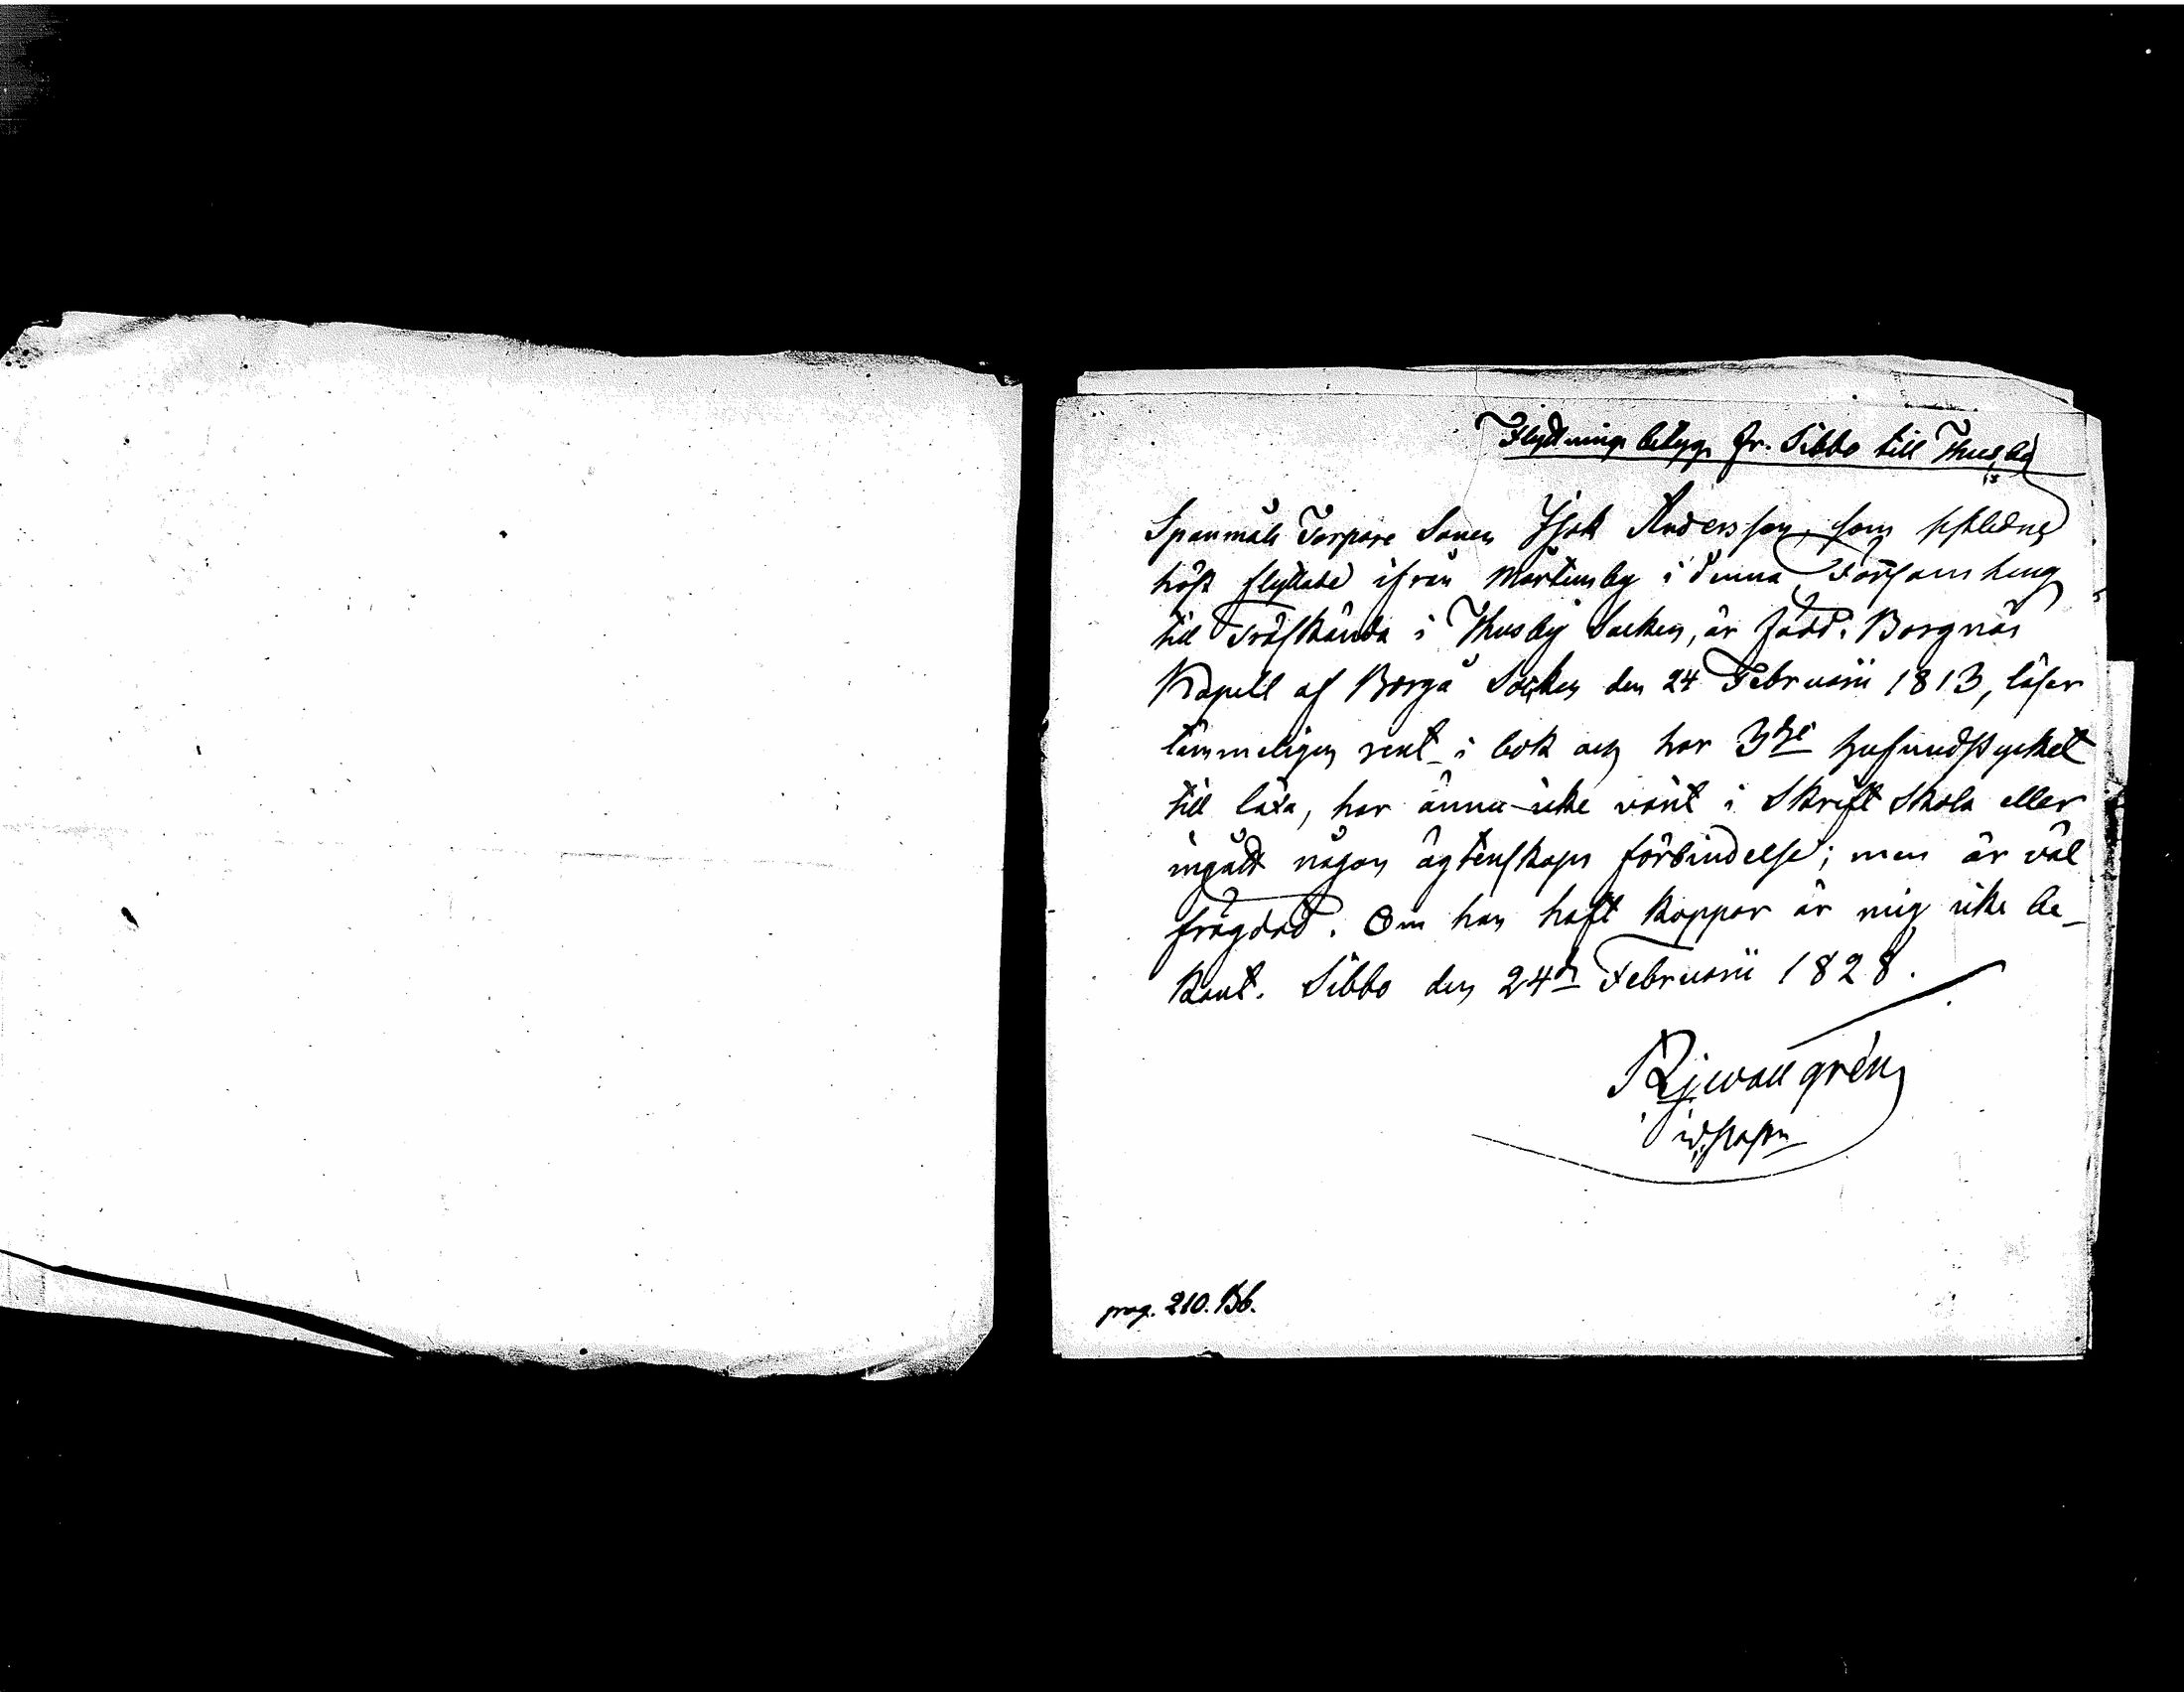 Flyttnings betyg fr. Sibbo till Thusby
Spanmåls Torpare Sonen Isak Andersson, som sistledne
höst flyttade ifrån Mårtensby i denna Församling
till Träskända i Thusby Socken, är född i Borgnäs
Kapell af Borgå Socken den 24 Februarii 1813, läser
temmeligen rent i bok och har 3ne hufvudstycket
till läxa, har ännu icke varit i Skrift Skola eller
ingått någon ägtenskaps förbindelse; men är väl
frägdad. Om han haft koppor är mig icke be-
kant. Sibbo den 24de Februarii 1828.
wallgrén
pag. 210. Bb.